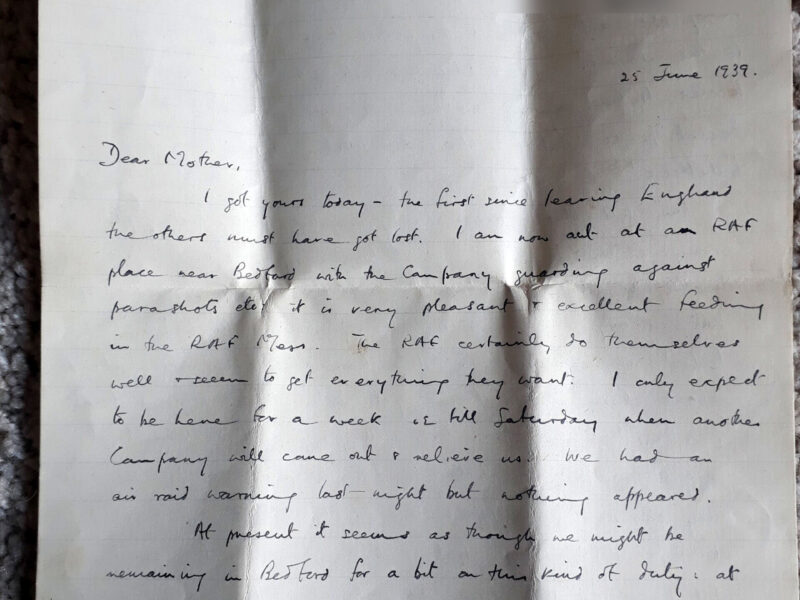 25 June 1939.
Dear Mother,
I got yours today – the first since leaving England
the others must have got lost. I am now out at an RAF
place near Bedford with the Company guarding against
parashots etc. it is very pleasant & excellent feeding
in the RAF Mess. The RAF certainly do themselves
well & seem to get everything they want. I only expect
to be here for a week ie till Saturday when another
Company will come out & relieve us. We had an
air raid warning last night but nothing appeared.
At present it seems as though we might be
remaining in Bedford for a bit on this kind of duty: at